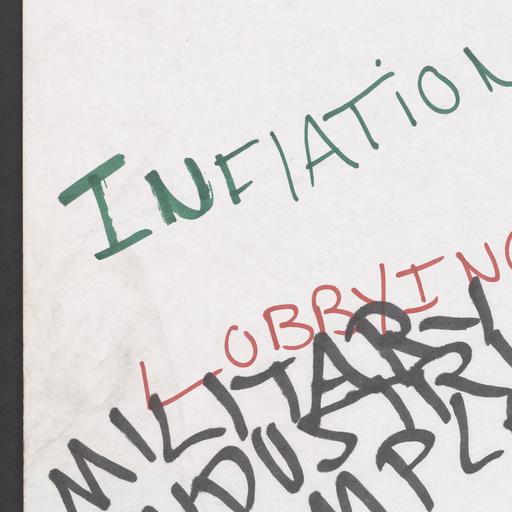 INFlATiON
LOBBYING
MILITARY
INDUST
MPL